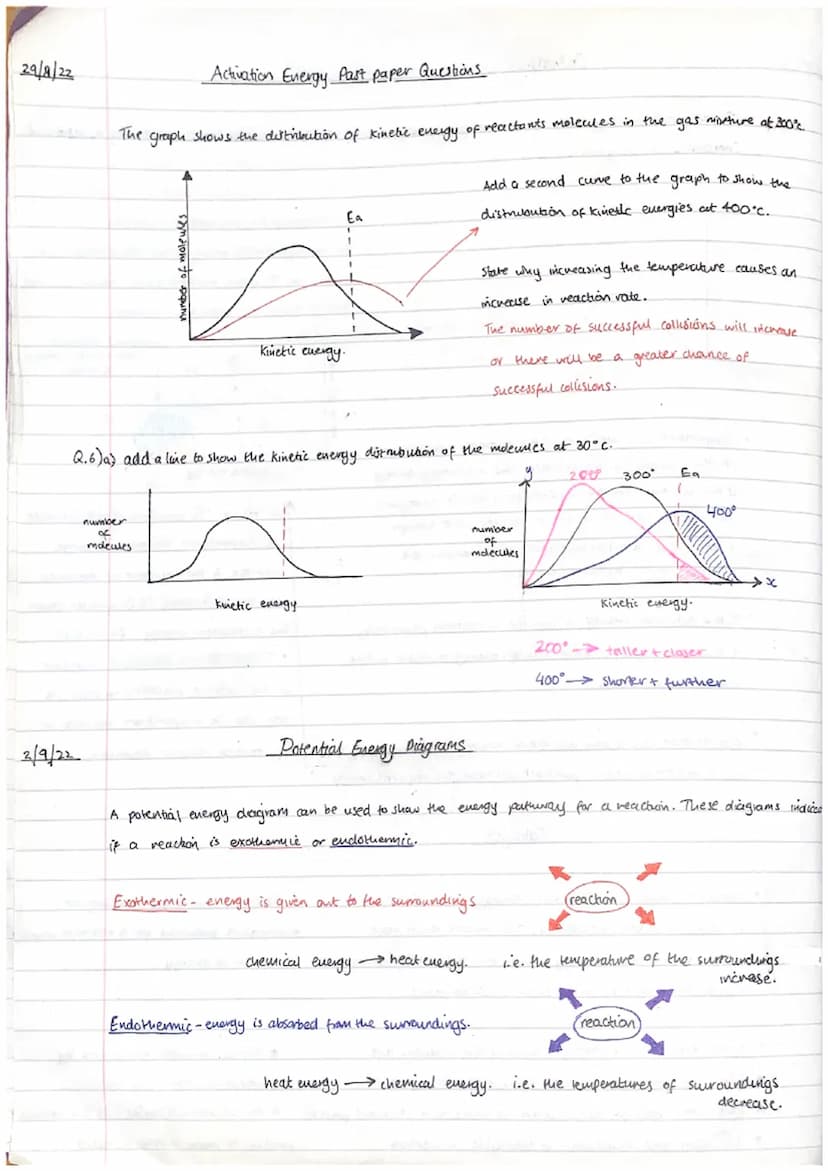 29/8/22
Activation Energy Past paper Questions
The graph shows the distribution of kinetic energy of reactants molecules in the gas mixture at 300°c
number of molecules
Ea
kinetic energy.
Add a second curve to the graph to show the
distribution of kinetic energies at 400°c.
State why increasing the temperature causes an
increase in reaction rate.
The number of successful collisions will increase
or there will be a greater chance of
successful collisions.
Q.6)a) add a line to show the kinetic energy distribution of the molecules at 30°c.
number
of
molecules
kinetic energy
y
200°
300°
Ea
400°
number
of
molecules
x
kinetic energy.
200° → taller + closer
400° → shorter + further
2/9/22
Potential Energy Diagrams
A potential energy diagram can be used to show the energy pathway for a reaction. These diagrams
if a reaction is exothermic or endothermic.
Exothermic - energy is given out to the surroundings
reaction
chemical energy → heat energy. i.e. the temperature of the surroundings
increase.
Endothermic - energy is absorbed from the surroundings.
reaction
heat energy → chemical energy. i.e. the temperatures of surroundings
decrease.